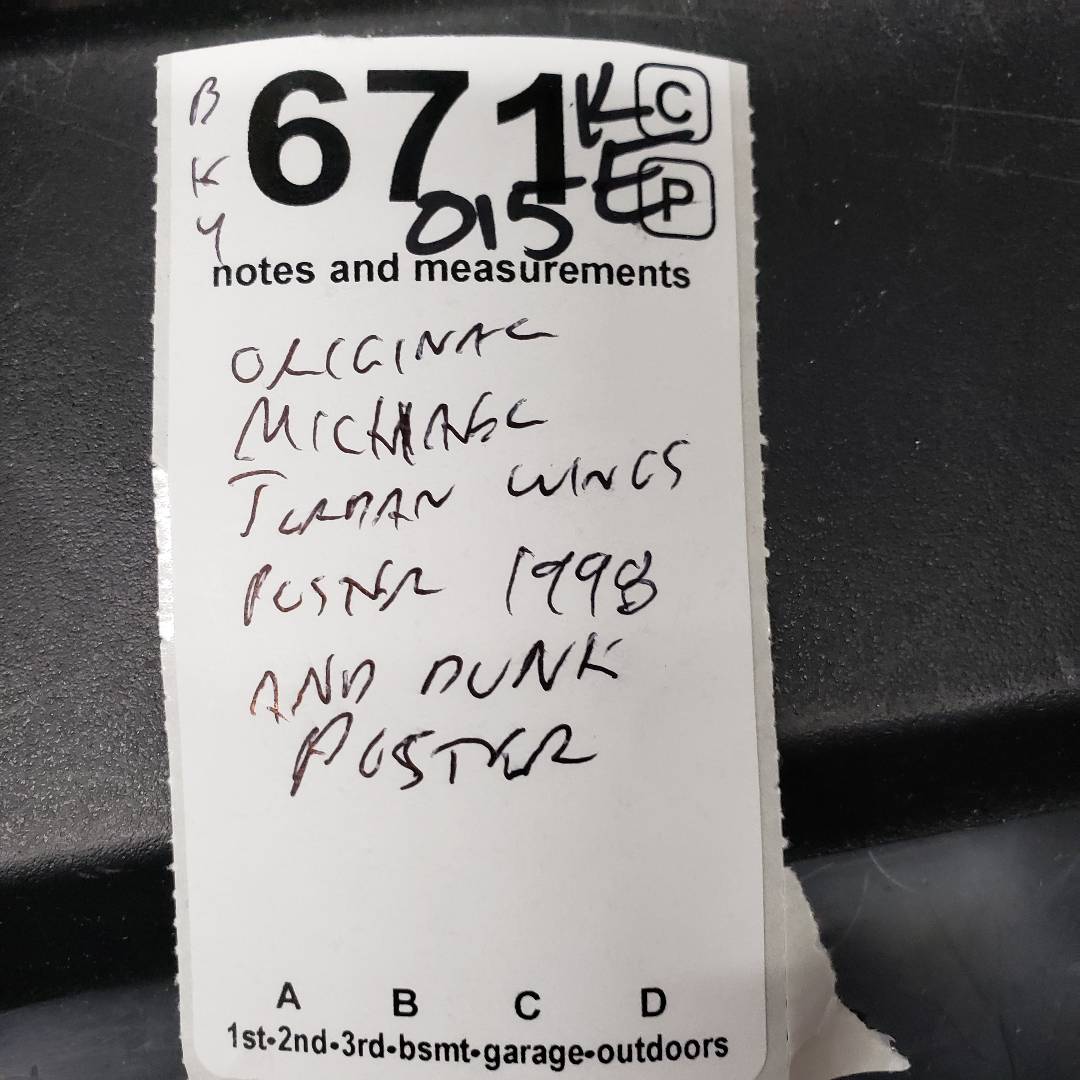 B
K
4
671 KE
C
P
015
notes and measurements
ORIGINAL
MICHAEL
JORDAN WINGS
POSTER 1998
AND DUNK
POSTER
A B C D
1st-2nd-3rd-bsmt-garage-outdoors